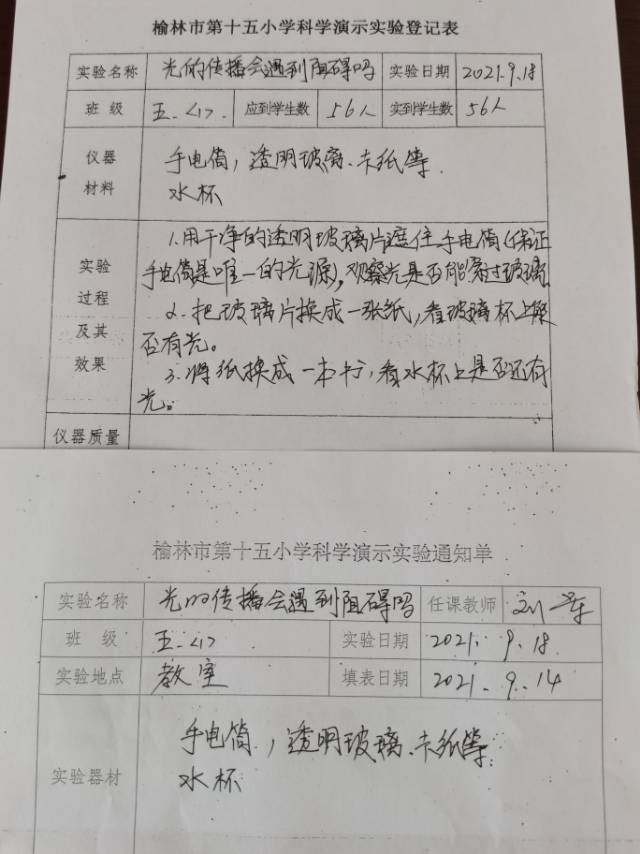 榆林市第十五小学科学演示实验登记表
实验名称 光的传播会遇到阻碍吗 实验日期 2021.9.18
班 级 五.<1>. 应到学生数 56人 实到学生数 56人
仪器材料 手电筒，透明玻璃、卡纸等.
水杯
实验过程及其效果 1.用干净的透明玻璃片遮住手电筒(保证
手电筒是唯一的光源),观察光是否能穿过玻璃.
2.把玻璃片换成一张纸,看玻璃杯上是
否有光。
3.将纸换成一本书,看水杯上是否还有
光。
仪器质量
榆林市第十五小学科学演示实验通知单
实验名称 光的传播会遇到阻碍吗 任课教师 刘
班 级 五.<1> 实验日期 2021. 9.18.
实验地点 教室 填表日期 2021. 9.14
实验器材 手电筒,透明玻璃、卡纸等.
水杯